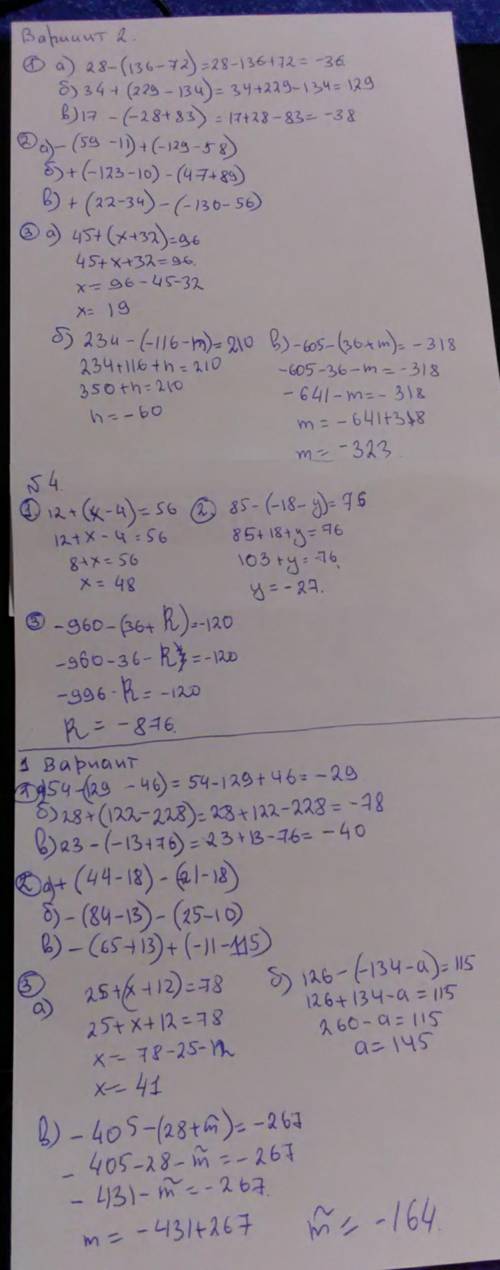 Вариант 2.
① а) 28-(136-72)=28-136+72=-36
б) 34+(229-134)=34+229-134=129
в) 17-(-28+83)=17+28-83=-38
② а) -(59-11)+(-129-58)
б) +(-123-10)-(47+89)
в) +(22-34)-(-130-56)
③ а) 45+(x+32)=96
45+x+32=96.
x=96-45-32
x=19
б) 234-(-116-n)=210
234+116+n=210
350+n=210
n=-60
в) -605-(36+m)=-318
-605-36-m=-318
-641-m=-318
m=-641+318
m=-323
№4.
① 12+(x-4)=56
12+x-4=56
8+x=56
x=48
② 85-(-18-y)=76
85+18+y=76
103+y=76.
y=-27.
③ -960-(36+R)=-120
-960-36-R=-120
-996-R=-120
R=-876.
1 Вариант
① а) 54-(129-46)=54-129+46=-29
б) 28+(122-228)=28+122-228=-78
в) 23-(-13+76)=23+13-76=-40
② а) +(44-18)-(21-18)
б) -(84-13)-(25-10)
в) -(65+13)+(-11-115)
③
а) 25+(x+12)=78
25+x+12=78
x=78-25-12
x=41
б) 126-(-134-a)=115
126+134-a=115
260-a=115
a=145
в) -405-(28+m)=-267
-405-28-m=-267
-431-m=-267.
m=-431+267
m=-164.